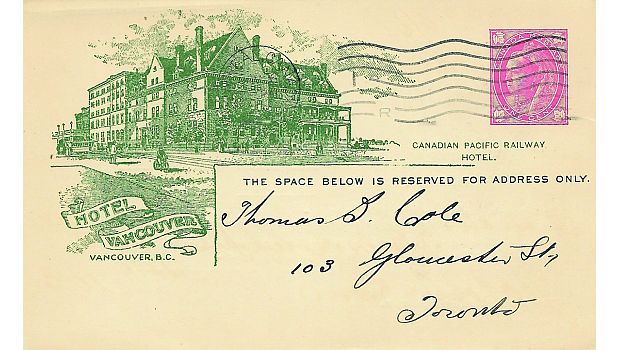 CANADIAN PACIFIC RAILWAY
HOTEL.
THE SPACE BELOW IS RESERVED FOR ADDRESS ONLY.
HOTEL
VANCOUVER
VANCOUVER, B.C.
Thomas S. Cole
103 Gloucester St,
Toronto